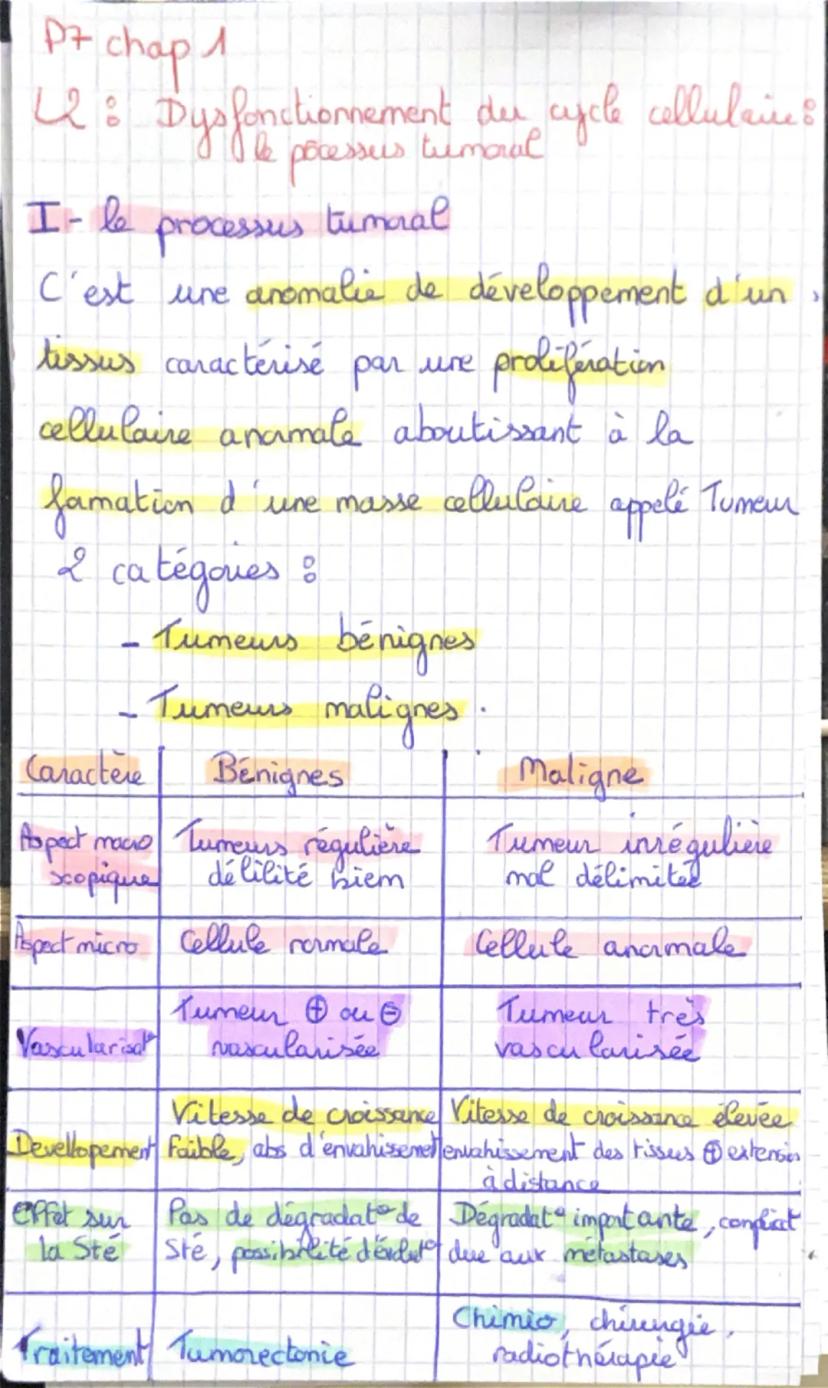 P7 chap 1
L2 : Dysfonctionnement du cycle cellulaire :
le pocessus tumoral
I - le processus tumoral
C'est une anomalie de développement d'un
tissus caractérisé par une prolifération
cellulaire anormale aboutissant à la
formation d'une masse cellulaire appelé Tumeur
2 catégories :
- Tumeurs bénignes
- Tumeurs malignes.
Caractère Bénignes Maligne
Aspect macro Tumeurs régulière Tumeur irrégulière
scopique délilité biem mal délimitée
Aspect micro Cellule normale Cellule anormale
Tumeur ⊕ ou ⊖ Tumeur très
Vascularisat° vascularisée vascularisée
Vitesse de croissance Vitesse de croissance élevée
Devellopement faible, abs d'envahissemet envahissement des tissus ⊕ extension
à distance
Effet sur Pas de dégradat° de Dégradat° importante, conflict
la Sté Sté, possibilité d'évolut° due aux métastases
Chimio, chirurgie,
Traitement Tumorectomie radiothérapie